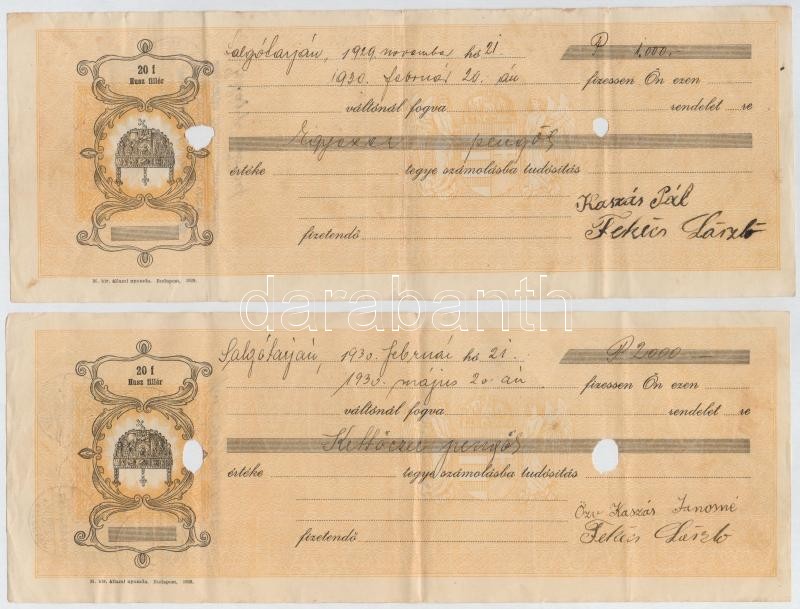 20 f
Husz fillér
Salgótarján, 1929. november hó 21. P 1,000.-
1930. február 20.-án fizessen Ön ezen
váltónál fogva rendelet re
Egyezer pengőt
értéke tegye számolásba tudósítás
Kaszás Pál
fizetendő László
M. kir. állami nyomda. Budapest, 1928.
darabanth
20 f
Husz fillér
Salgótarján, 1930. február hó 21. P 2,000
1930. május 20-án fizessen Ön ezen
váltónál fogva rendelet re
Kettőezer pengőt
értéke tegye számolásba tudósítás
Özv Kaszás Janosné
fizetendő László
M. kir. állami nyomda. Budapest, 1928.